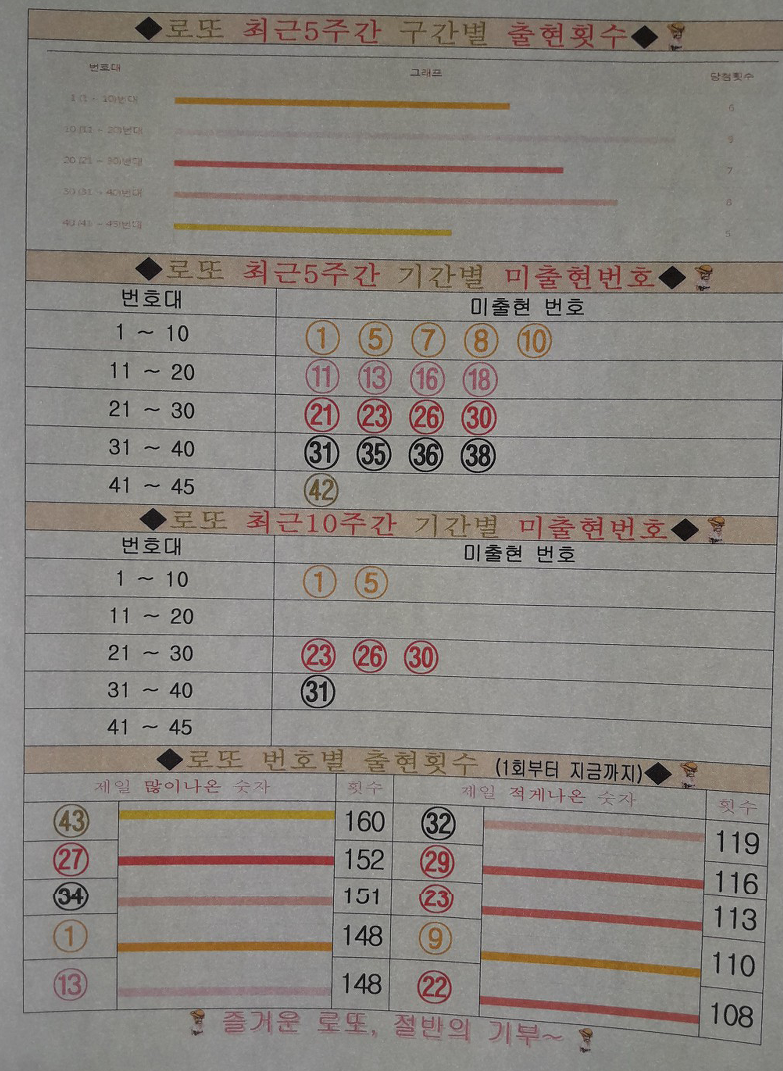 ◆로또 최근5주간 구간별 출현횟수◆
번호대 그래프 당첨횟수
1 (1 ~ 10)번대 6
10 (11 ~ 20)번대 9
20 (21 ~ 30)번대 7
30 (31 ~ 40)번대 8
40 (41 ~ 45)번대 5
◆로또 최근5주간 기간별 미출현번호◆
번호대 미출현 번호
1 ~ 10 ① ⑤ ⑦ ⑧ ⑩
11 ~ 20 ⑪ ⑬ ⑯ ⑱
21 ~ 30 ㉑ ㉓ ㉖ ㉚
31 ~ 40 ㉛ ㉟ ㊱ ㊳
41 ~ 45 ㊷
◆로또 최근10주간 기간별 미출현번호◆
번호대 미출현 번호
1 ~ 10 ① ⑤
11 ~ 20
21 ~ 30 ㉓ ㉖ ㉚
31 ~ 40 ㉛
41 ~ 45
◆로또 번호별 출현횟수 (1회부터 지금까지)◆
제일 많이나온 숫자 횟수 제일 적게나온 숫자 횟수
㊸ 160 ㉜ 119
㉗ 152 ㉙ 116
㉞ 151 ㉓ 113
① 148 ⑨ 110
⑬ 148 ㉒ 108
즐거운 로또, 절반의 기부~